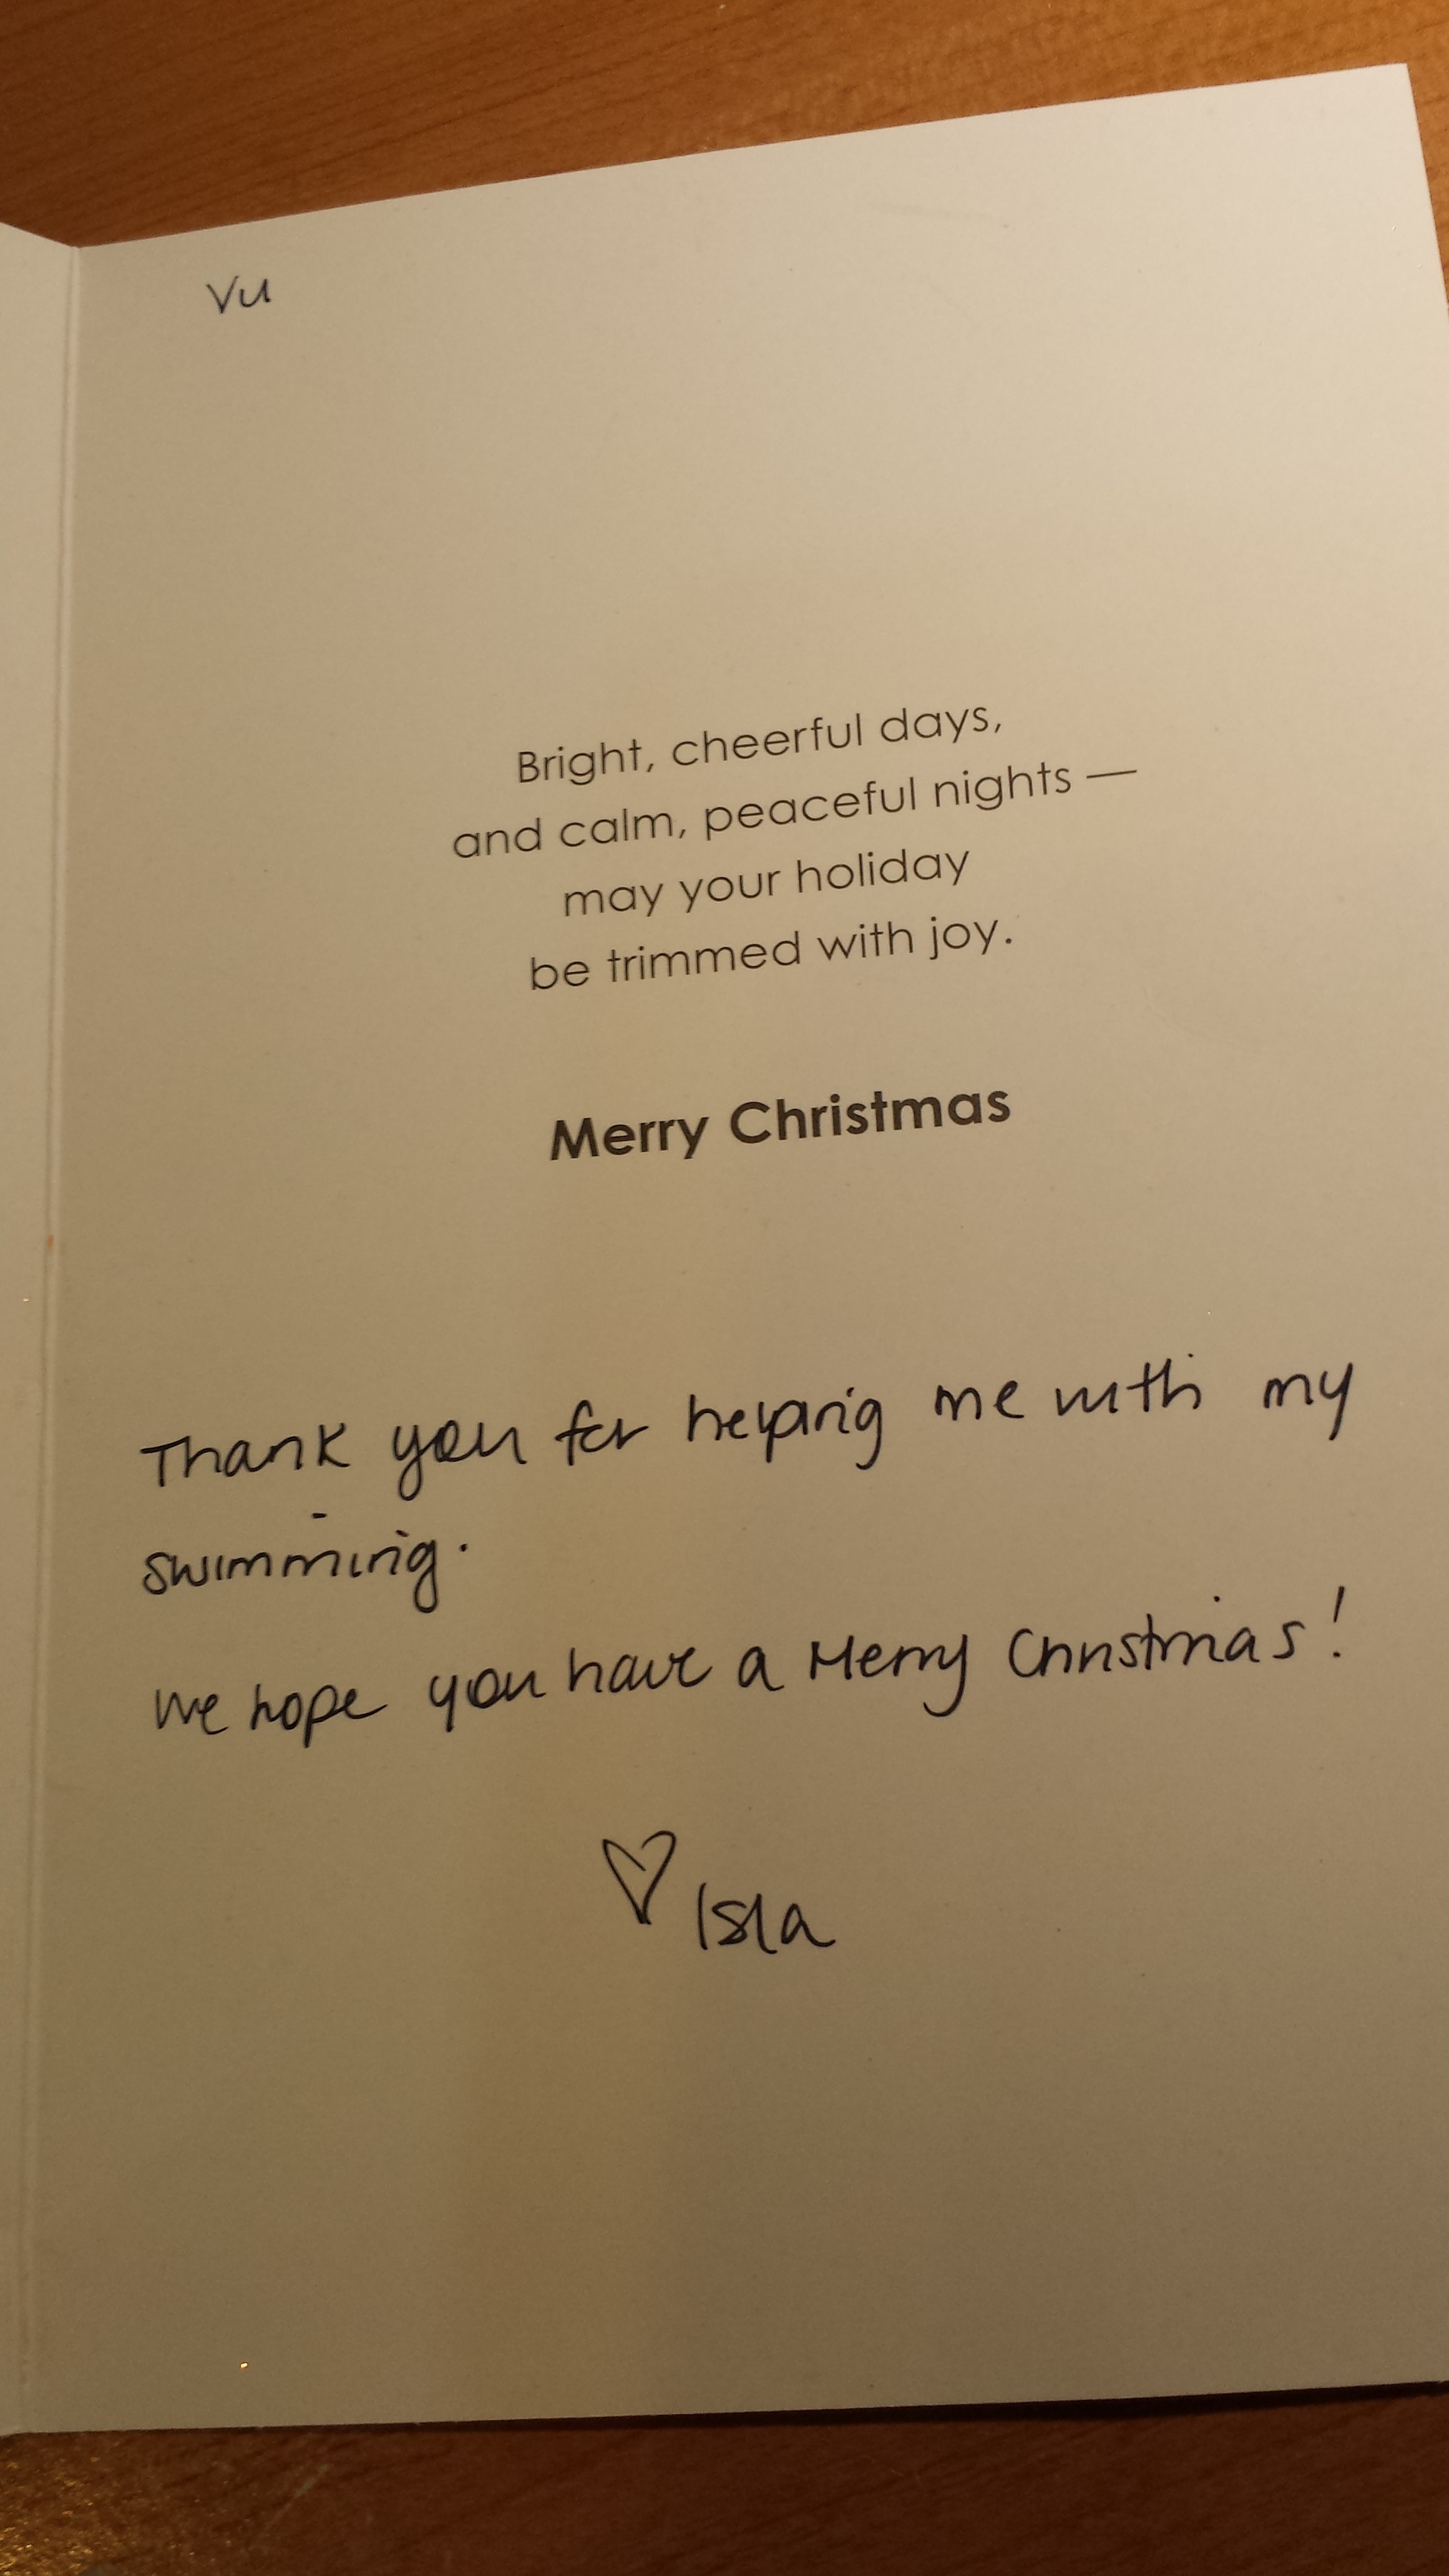 Vu
Bright, cheerful days,
and calm, peaceful nights —
may your holiday
be trimmed with joy.
Merry Christmas
Thank you for helping me with my
swimming.
We hope you have a Merry Christmas!
♡ Isla